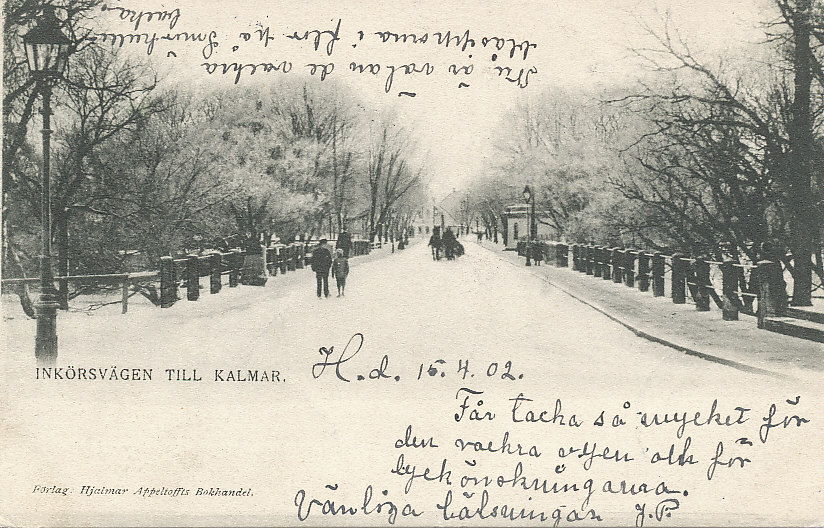 Nu är redan de vackra
blåsipporna i flor på
backe,
INKÖRSVÄGEN TILL KALMAR.
H. d. 15. 4. 02.
Får tacka så mycket för
den vackra vyen och för
lyckönskningarna.
Vänliga hälsningar J. P.
Förlag: Hjalmar Appeltoffts Bokhandel.